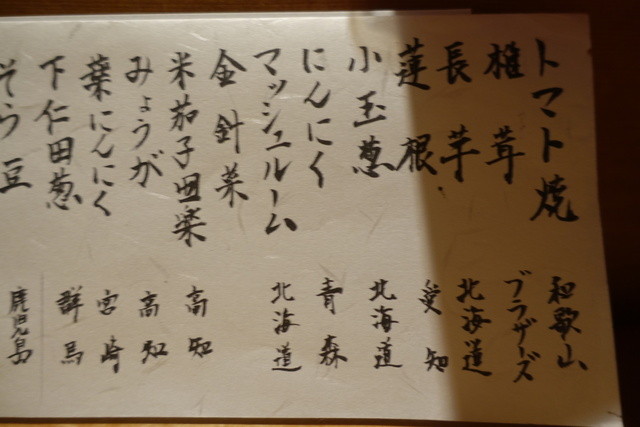 トマト焼 和歌山
椎茸 ブラザーズ
長芋 北海道
蓮根 愛知
小玉葱 北海道
にんにく 青森
マッシュルーム 北海道
金針菜
米茄子田楽 高知
みょうが 高知
葉にんにく 宮崎
下仁田葱 群馬
そら豆 鹿児島